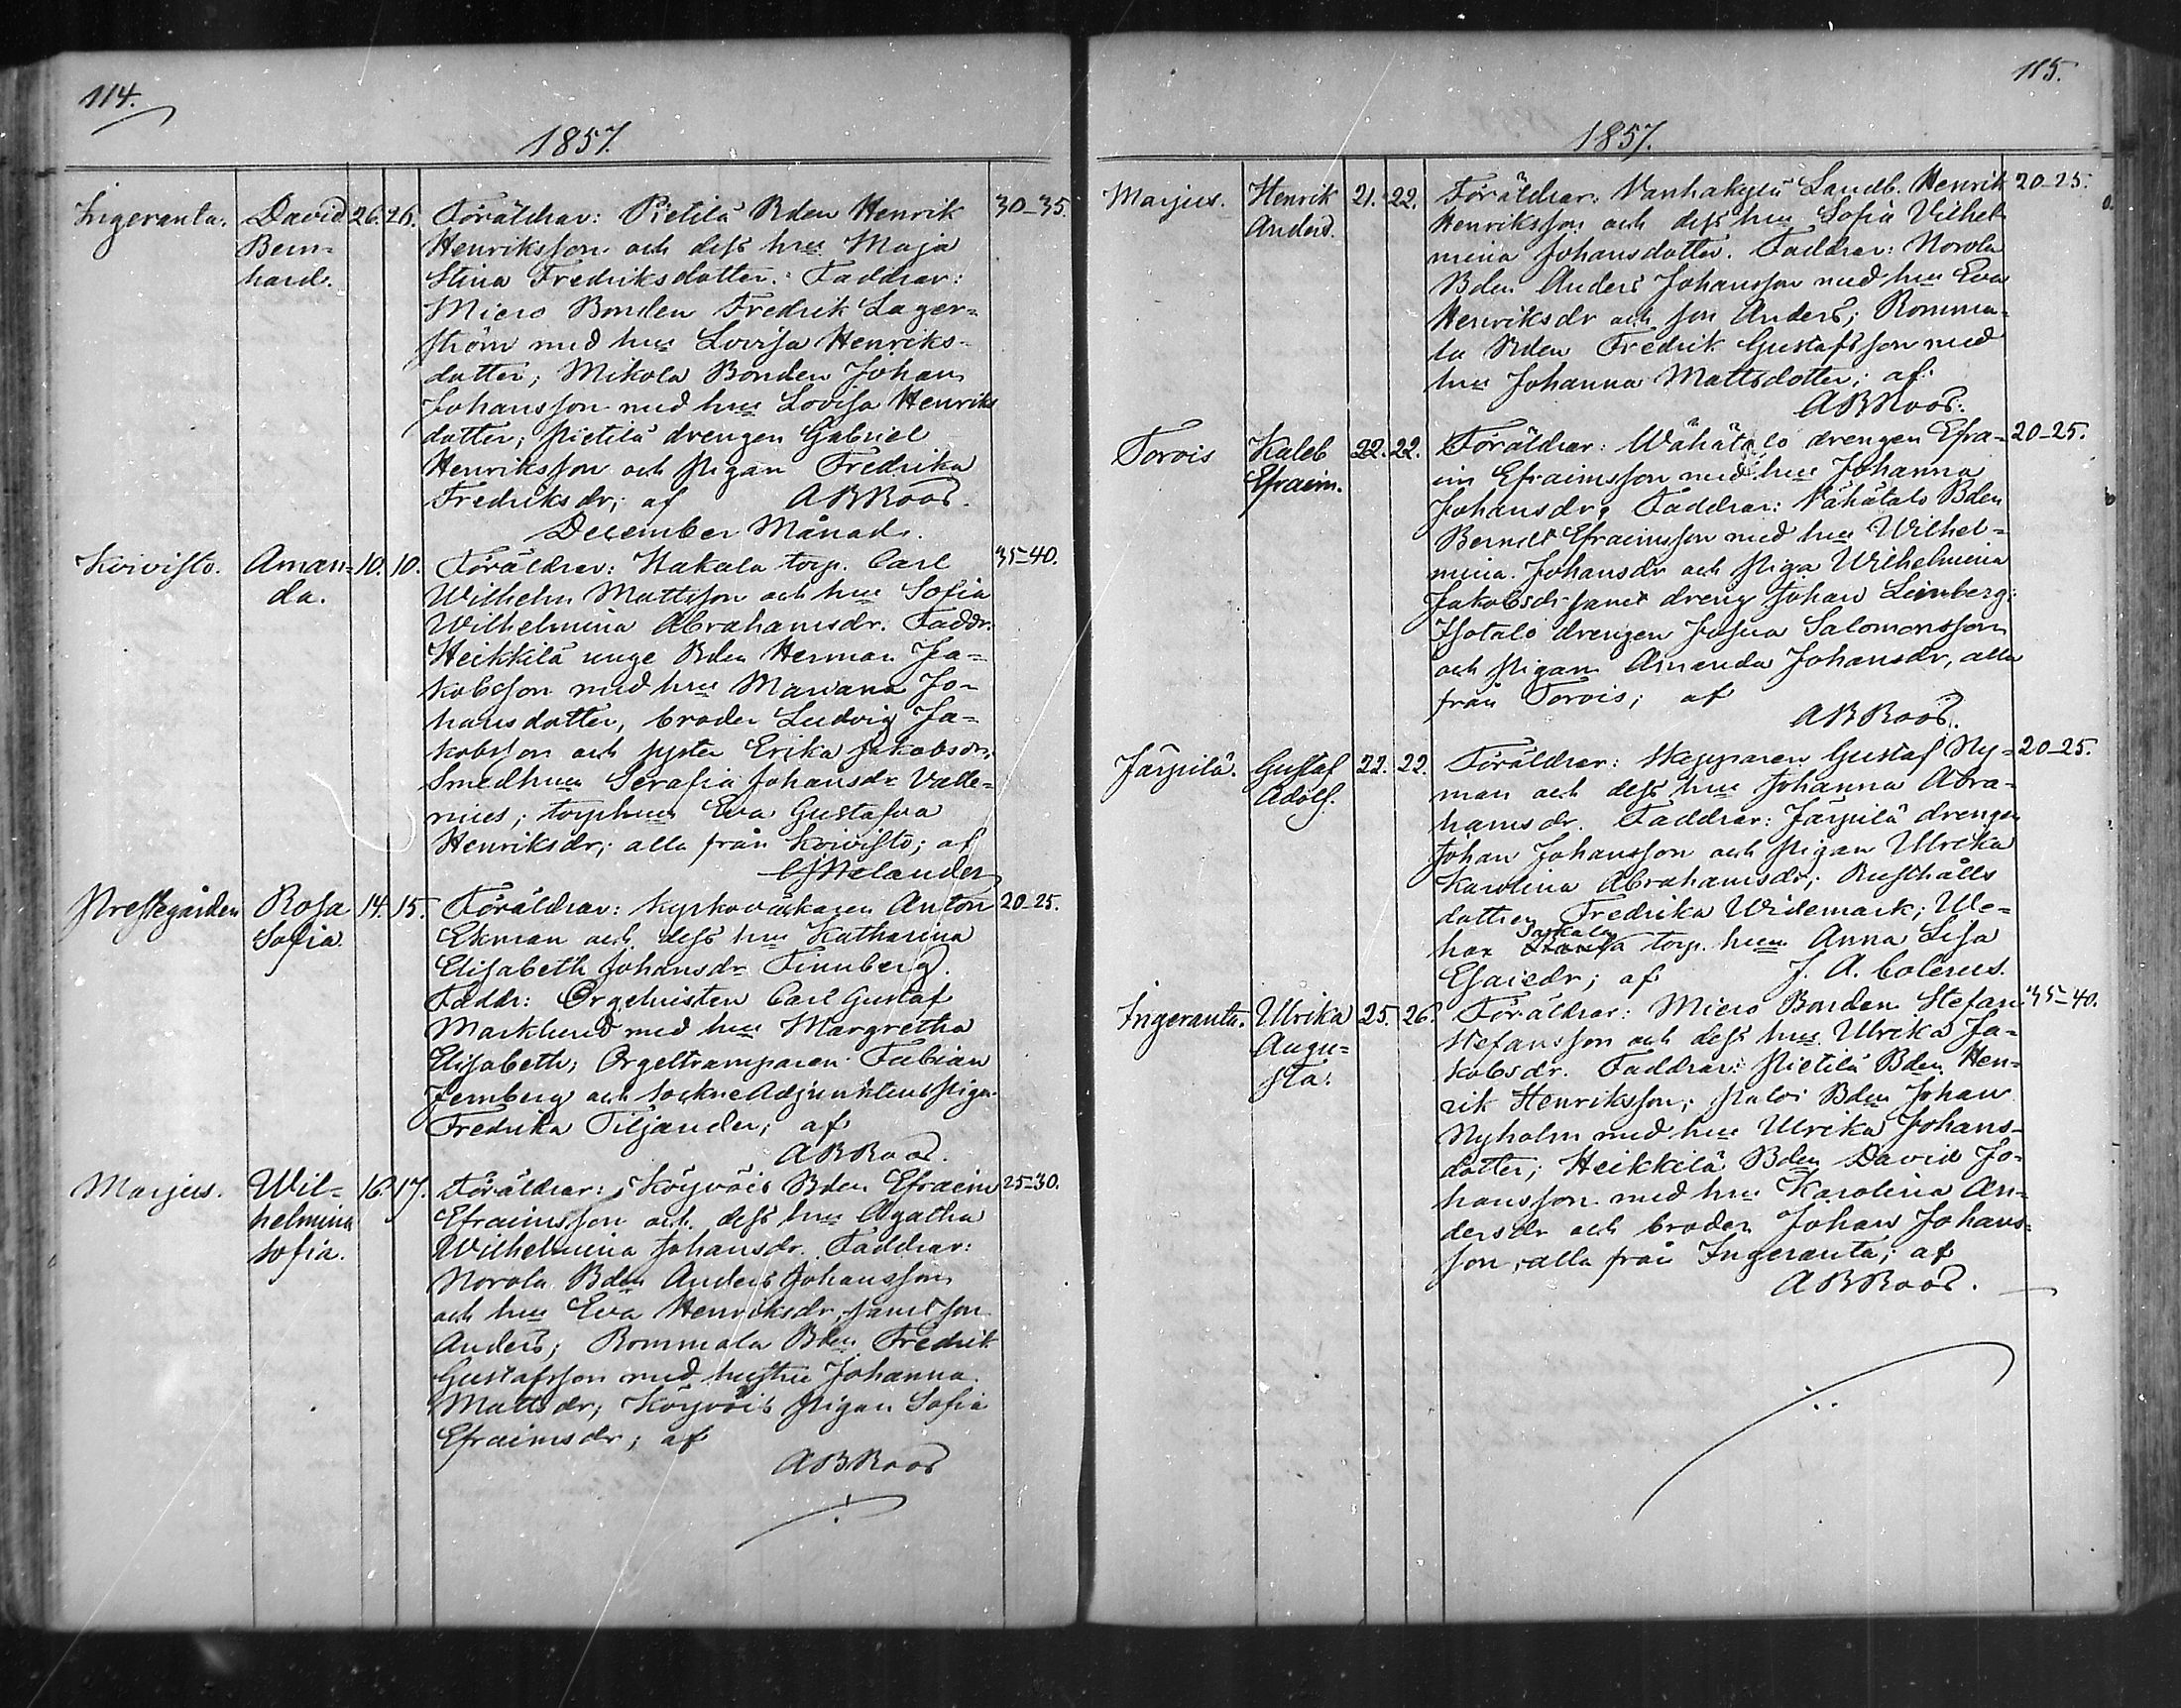 114.
1857.
Ingeranta. David 26. 26. Föräldrar: Pietilä Bden Henrik 30-35.
Bern= Henriksson och dess hu Maja
hard. Stina Fredriksdotter: Faddrar:
Micro Bonden Fredrik Lager=
ström med hu Lovisa Henriks-
dotter; Mikola Bonden Johan
Johansson med hu Lovisa Henriks
dotter; Pietilä drengen Gabriel
Henriksson och Pigan Fredrika
Fredriksdr; af ABRoos.
December Månad.
Koivisto. Aman= 10. 10. Föräldrar: Hakala torp. Carl 35-40.
da. Wilhelm Mattsson och hu Sofia
Wilhelmina Abrahamsdr. Faddr:
Heikkilä unge Bden Herman Ja=
kobsson med hu Mariana Jo-
hansdotter, broder Ludvig Ja=
kobsson och syster Erika Jakobsdr.
Smedhun Serafia Johansdr Valle=
nies; torphun Eva Gustafva
Henriksdr; alla från Koivisto; af
Melander
Prestegården Rosa 14. 15. Föräldrar: Kyrkoväktaren Anton 20-25.
Sofia Ekman och dess hu Katharina
Elisabeth Johansdr Finnberg.
Faddr: Orgelnisten Carl Gustaf
Marklund med hu Margretha
Elisabeth; Orgeltramparen Fabian
Jernberg och SockneAdjunktens Piga
Fredrika Tiljander; af
ABRoos.
Marjus. Wil= 16. 17. Föräldrar: Köyvöis Bden Efraim 25-30.
helmina Efraimsson och dess hu Agatha
Sofia. Wilhelmina Johansdr. Faddrar:
Norola Bden Anders Johansson
och hu Eva Henriksdr, samt son
Anders; Rommala Bden Fredrik
Gustafsson med hustru Johanna
Mattsdr; Köyvöis Pigan Sofia
Efraimsdr; af
ABRoos
115.
1857.
Marjus. Henrik 21. 22. Föräldrar: Vanhakylä Landb. Henrik 20-25.
Anders. Henriksson och dess hu Sofia Vilhel
mina Johansdotter. Faddrar: Norola
Bden Anders Johansson med hu Eva
Henriksdr och son Anders; Romma-
la Bden Fredrik Gustafsson med
hu Johanna Mattsdotter; af
ABRoos.
Torvis Kaleb 22. 22. Föräldrar: Wähätalo drengen Efra- 20-25.
Efraim. im Efraimsson med hu Johanna
Johansdr, Faddrar: Vähätalo Bden
Berndt Efraimsson med hu Wilhel=
mina Johansdr och Piga Wilhelmina
Jakobsdr samt dreng Johan Leinberg;
Isotalo drengen Josua Salomonsson
och Pigan Amanda Johansdr, alla
från Torvis; af
ABRoos.
Järpilä. Gustaf 22. 22. Föräldrar: Skepparen Gustaf Ny= 20-25.
Adolf. man och dess hu Johanna Abra-
hamsdr. Faddrar: Järpilä drengen
Johan Johansson och Pigan Ulrika
Karolina Abrahamsdr; Rusthålls
dottren Fredrika Widemark; We=
har torp. hun Anna Lisa
Esaiedr; af J. A. Colerus.
Ingeranta. Ulrika 25. 26. Föräldrar: Micro Bonden Stefan 35-40.
Augu= Stefansson och dess hu Ulrika Ja=
sta. kobsdr. Faddrar: Pietilä Bden Hen=
rik Henriksson; Paloi Bden Johan
Nyholm med hu Ulrika Johans-
dotter; Heikkilä Bden David Jo-
hansson med hu Karolina An-
dersdr och broder Johan Johans=
son, alla från Ingeranta; af
ABRoos.